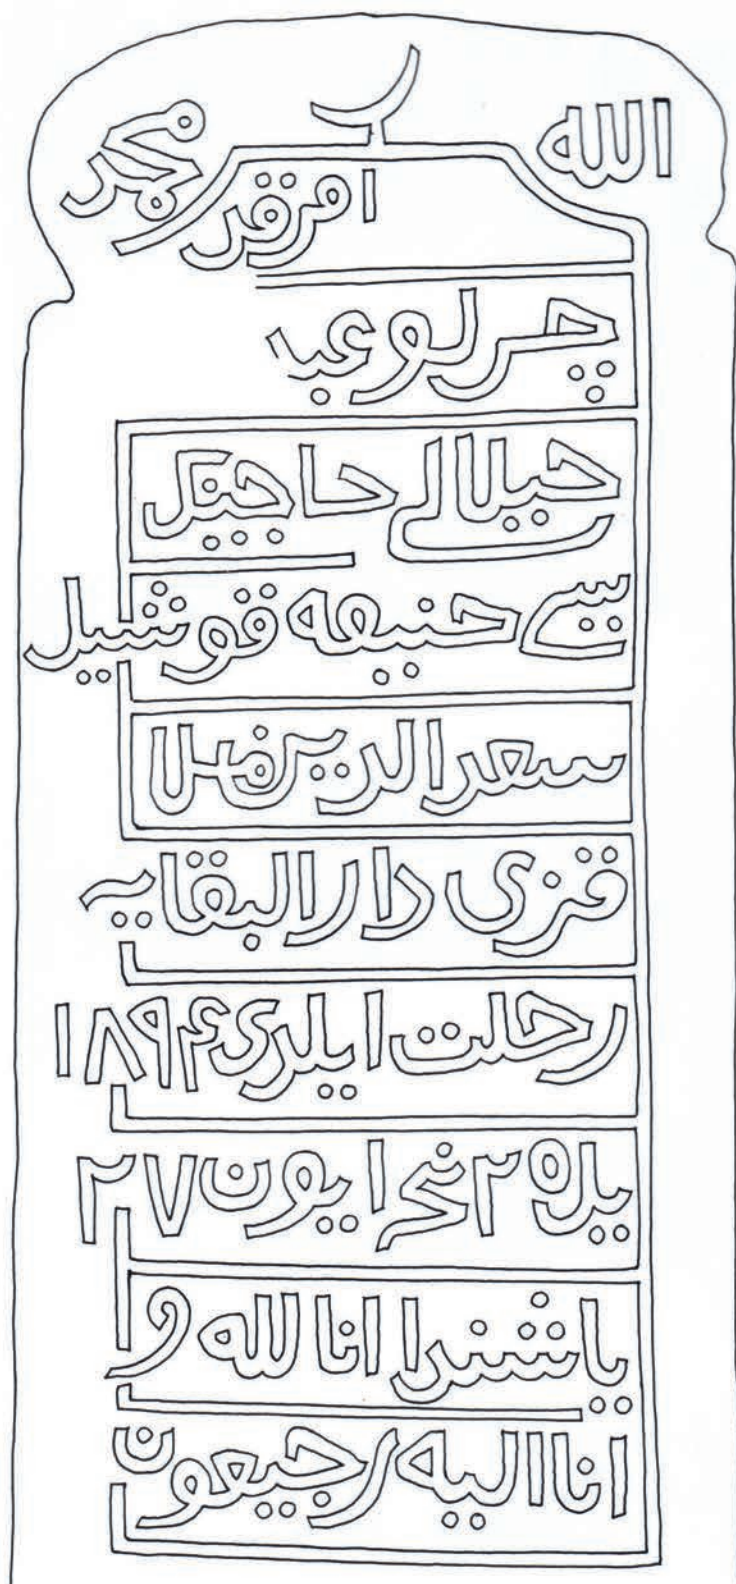 الله محمد
ا مرقد
چرلو عبد
حيلالي حاجينك
سي حنيفه قوشيل
سعد الدين
قزى دار البقايه
رحلت ايلدى ١٨٩۴
يل ٢٥ نجى ايون ٢٧
ياشندا انا لله و
انا اليه رجيعون